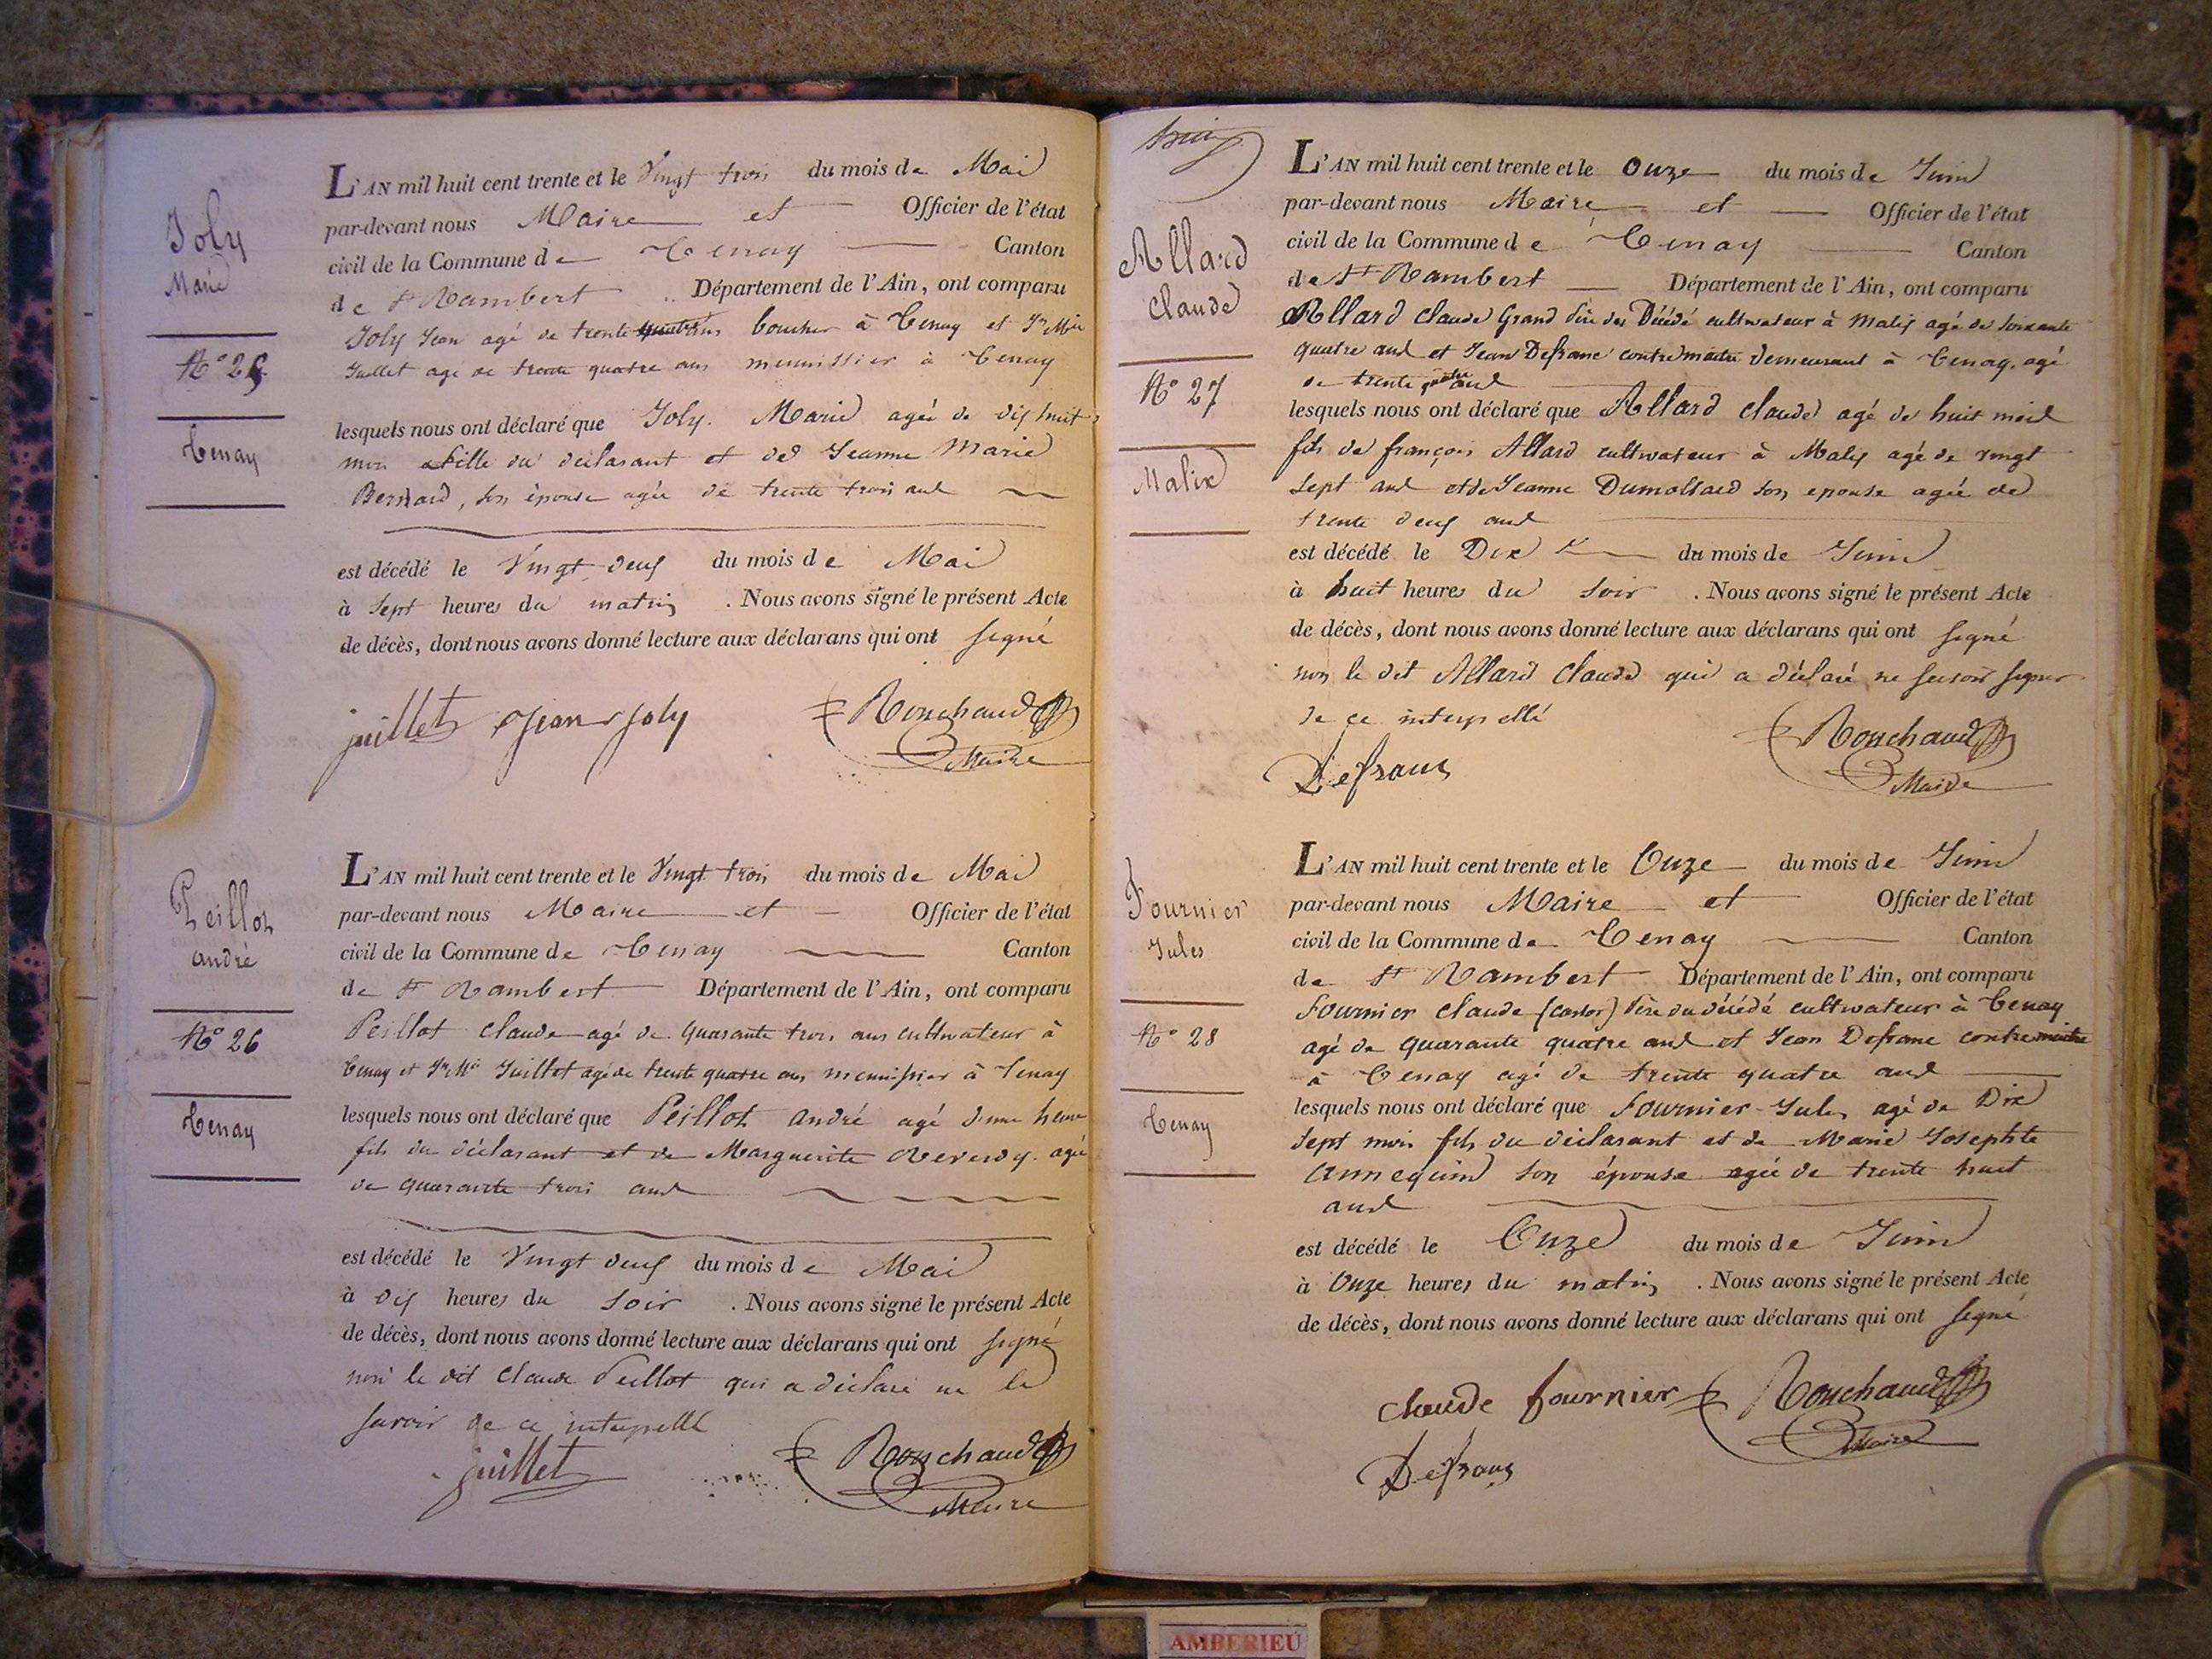 Joly
Marie
N° 25
Tenay
L'AN mil huit cent trente et le Vingt trois du mois de Mai
par-devant nous Maire et Officier de l'état
civil de la Commune de Tenay Canton
de St Rambert Département de l'Ain, ont comparu
Joly Jean agé de trente ans boucher à Tenay et Jn Mie
Juillet agé de trente quatre ans menuissier à Tenay
lesquels nous ont déclaré que Joly Marie agée de dix huit
mois fille du déclarant et de Jeanne Marie
Bernard, son épouse agée de trente trois ans
est décédé le Vingt deux du mois de Mai
à Sept heures du matin . Nous avons signé le présent Acte
de décès, dont nous avons donné lecture aux déclarans qui ont signé
juillet Jean Joly Ronchaud
Maire
Peillot
andré
N° 26
Tenay
L'AN mil huit cent trente et le Vingt trois du mois de Mai
par-devant nous Maire et Officier de l'état
civil de la Commune de Tenay Canton
de St Rambert Département de l'Ain, ont comparu
Peillot claude agé de quarante trois ans cultivateur à
Tenay et Jn Mie Juillet agé de trente quatre ans menuissier à Tenay
lesquels nous ont déclaré que Peillot andré agé d'une heure
fils du déclarant et de Marguerite Reverdy agée
de quarante trois ans
est décédé le Vingt deux du mois de Mai
à dix heures du soir . Nous avons signé le présent Acte
de décès, dont nous avons donné lecture aux déclarans qui ont signé
non le dit claude Peillot qui a déclaré ne le
savoir de ce interpellé
juillet Ronchaud
Maire
Allard
claude
N° 27
Malix
L'AN mil huit cent trente et le Onze du mois de Juin
par-devant nous Maire et Officier de l'état
civil de la Commune de Tenay Canton
de St Rambert Département de l'Ain, ont comparu
Allard claude Grand Père du Décédé cultivateur à Malix agé de soixante
quatre ans et Jean Defranc contremaitre demeurant à Tenay agé
de trente quatre ans
lesquels nous ont déclaré que Allard claude agé de huit mois
fils de françois Allard cultivateur à Malix agé de vingt
sept ans et de Jeanne Dumollard son epouse agée de
trente deux ans
est décédé le Dix du mois de Juin
à huit heures du soir . Nous avons signé le présent Acte
de décès, dont nous avons donné lecture aux déclarans qui ont signé
non le dit Allard Claude qui a déclaré ne savoir signer
de ce interpellé
Defranc Ronchaud
Maire
Fournier
Jules
N° 28
Tenay
L'AN mil huit cent trente et le Onze du mois de Juin
par-devant nous Maire et Officier de l'état
civil de la Commune de Tenay Canton
de St Rambert Département de l'Ain, ont comparu
Fournier claude (castor) Père du décédé cultivateur à Tenay
agé de quarante quatre ans et Jean Defranc contremaitre
à Tenay agé de trente quatre ans
lesquels nous ont déclaré que Fournier Jules agé de Dix
sept mois fils du déclarant et de Marie Josephte
Annequin son épouse agée de trente huit
ans
est décédé le Onze du mois de Juin
à Onze heures du matin . Nous avons signé le présent Acte
de décès, dont nous avons donné lecture aux déclarans qui ont signé
claude fournier Ronchaud
Maire
Defranc
AMBERIEU